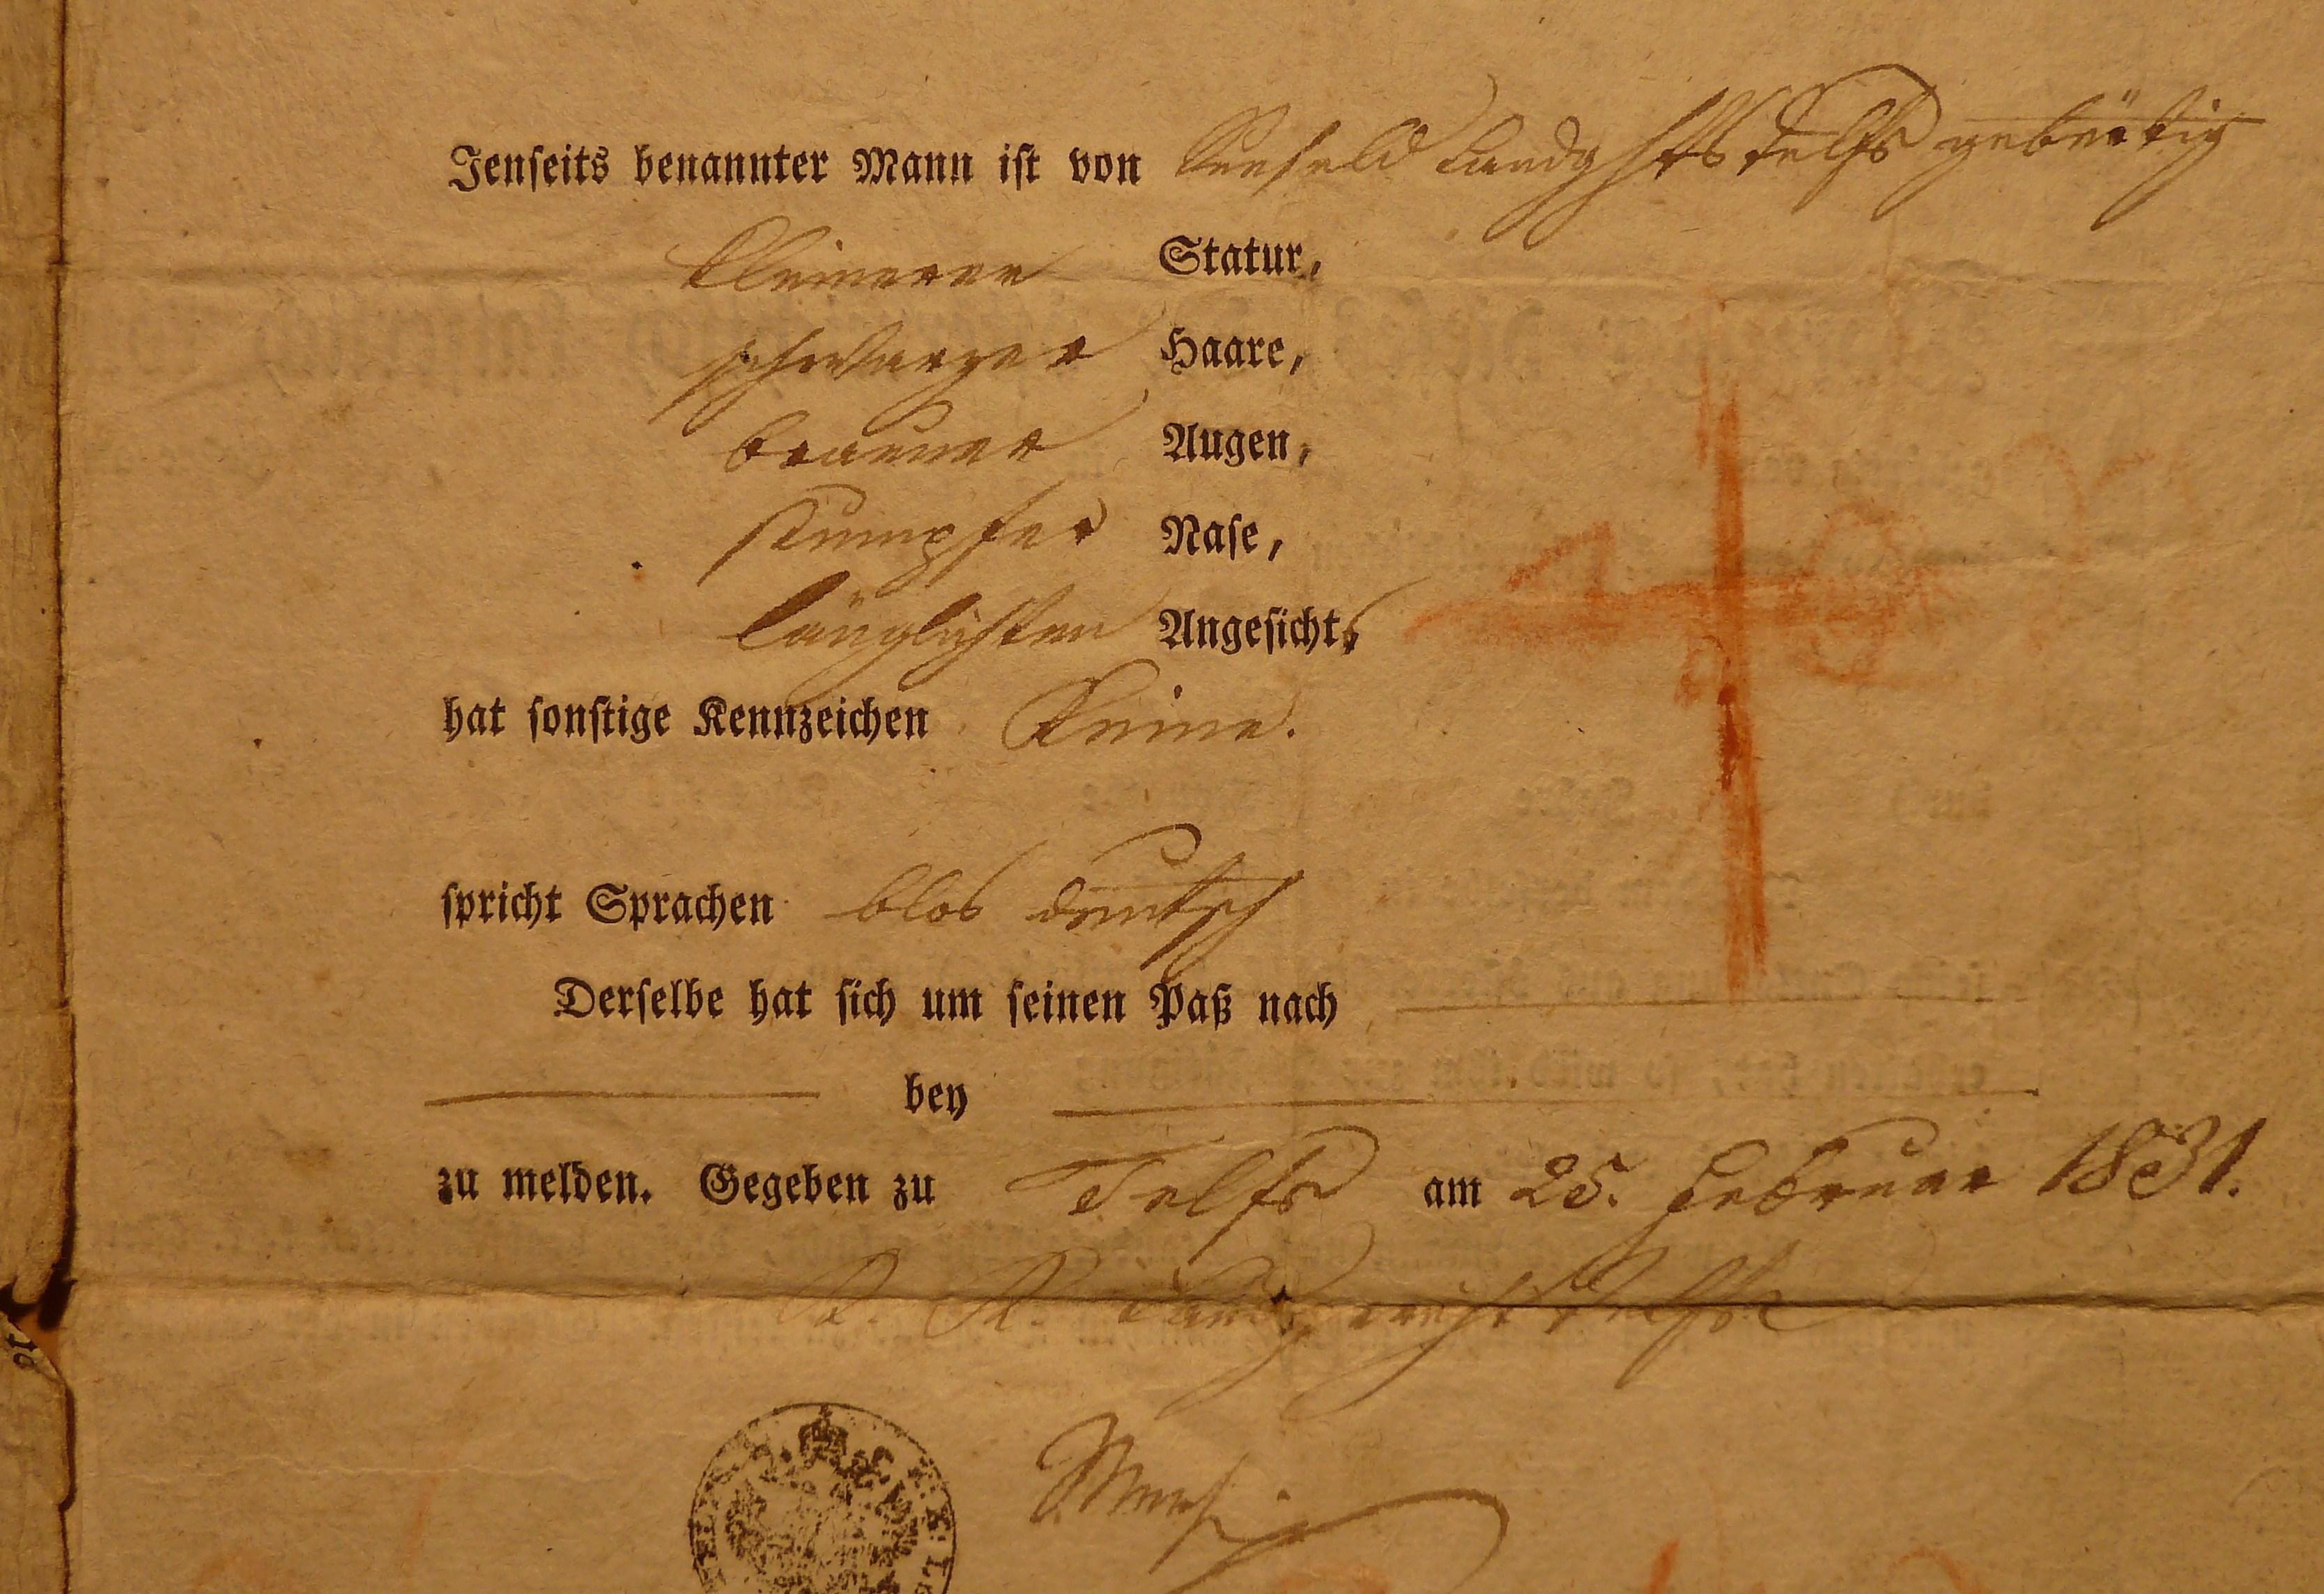 Jenseits benannter Mann ist von Seefeld Landghts Telfs gebürtig
kleinerer Statur,
schwarzer Haare,
brauner Augen,
stumpfer Nase,
länglichten Angesichts
hat sonstige Kennzeichen Keine.
spricht Sprachen blos deutsch
Derselbe hat sich um seinen Paß nach
bey
zu melden. Gegeben zu Telfs am 25. Februar 1831.
K. K. Landgericht Telfs